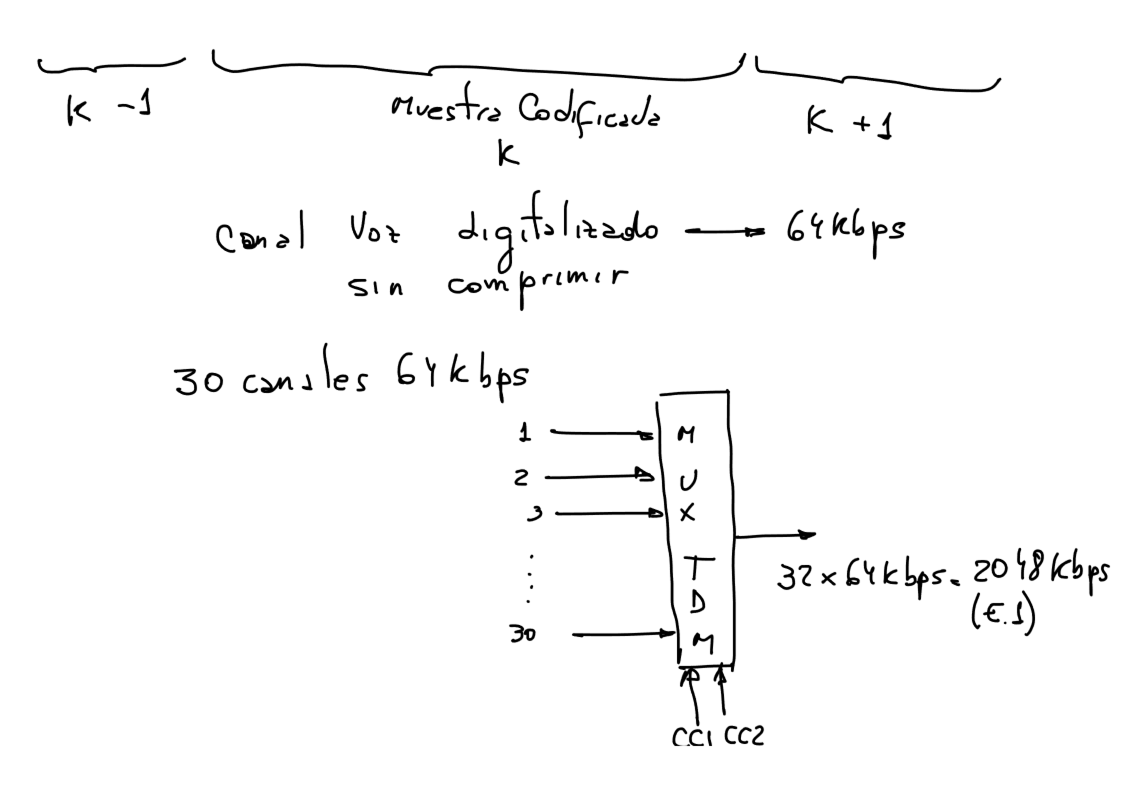 K -1
Muestra Codificada
K
K +1
Canal Voz digitalizado → 64kbps
sin comprimir
30 canales 64kbps
1
2
3
30
MUX
TDM
32×64kbps = 2048kbps
(E.1)
CC1 CC2